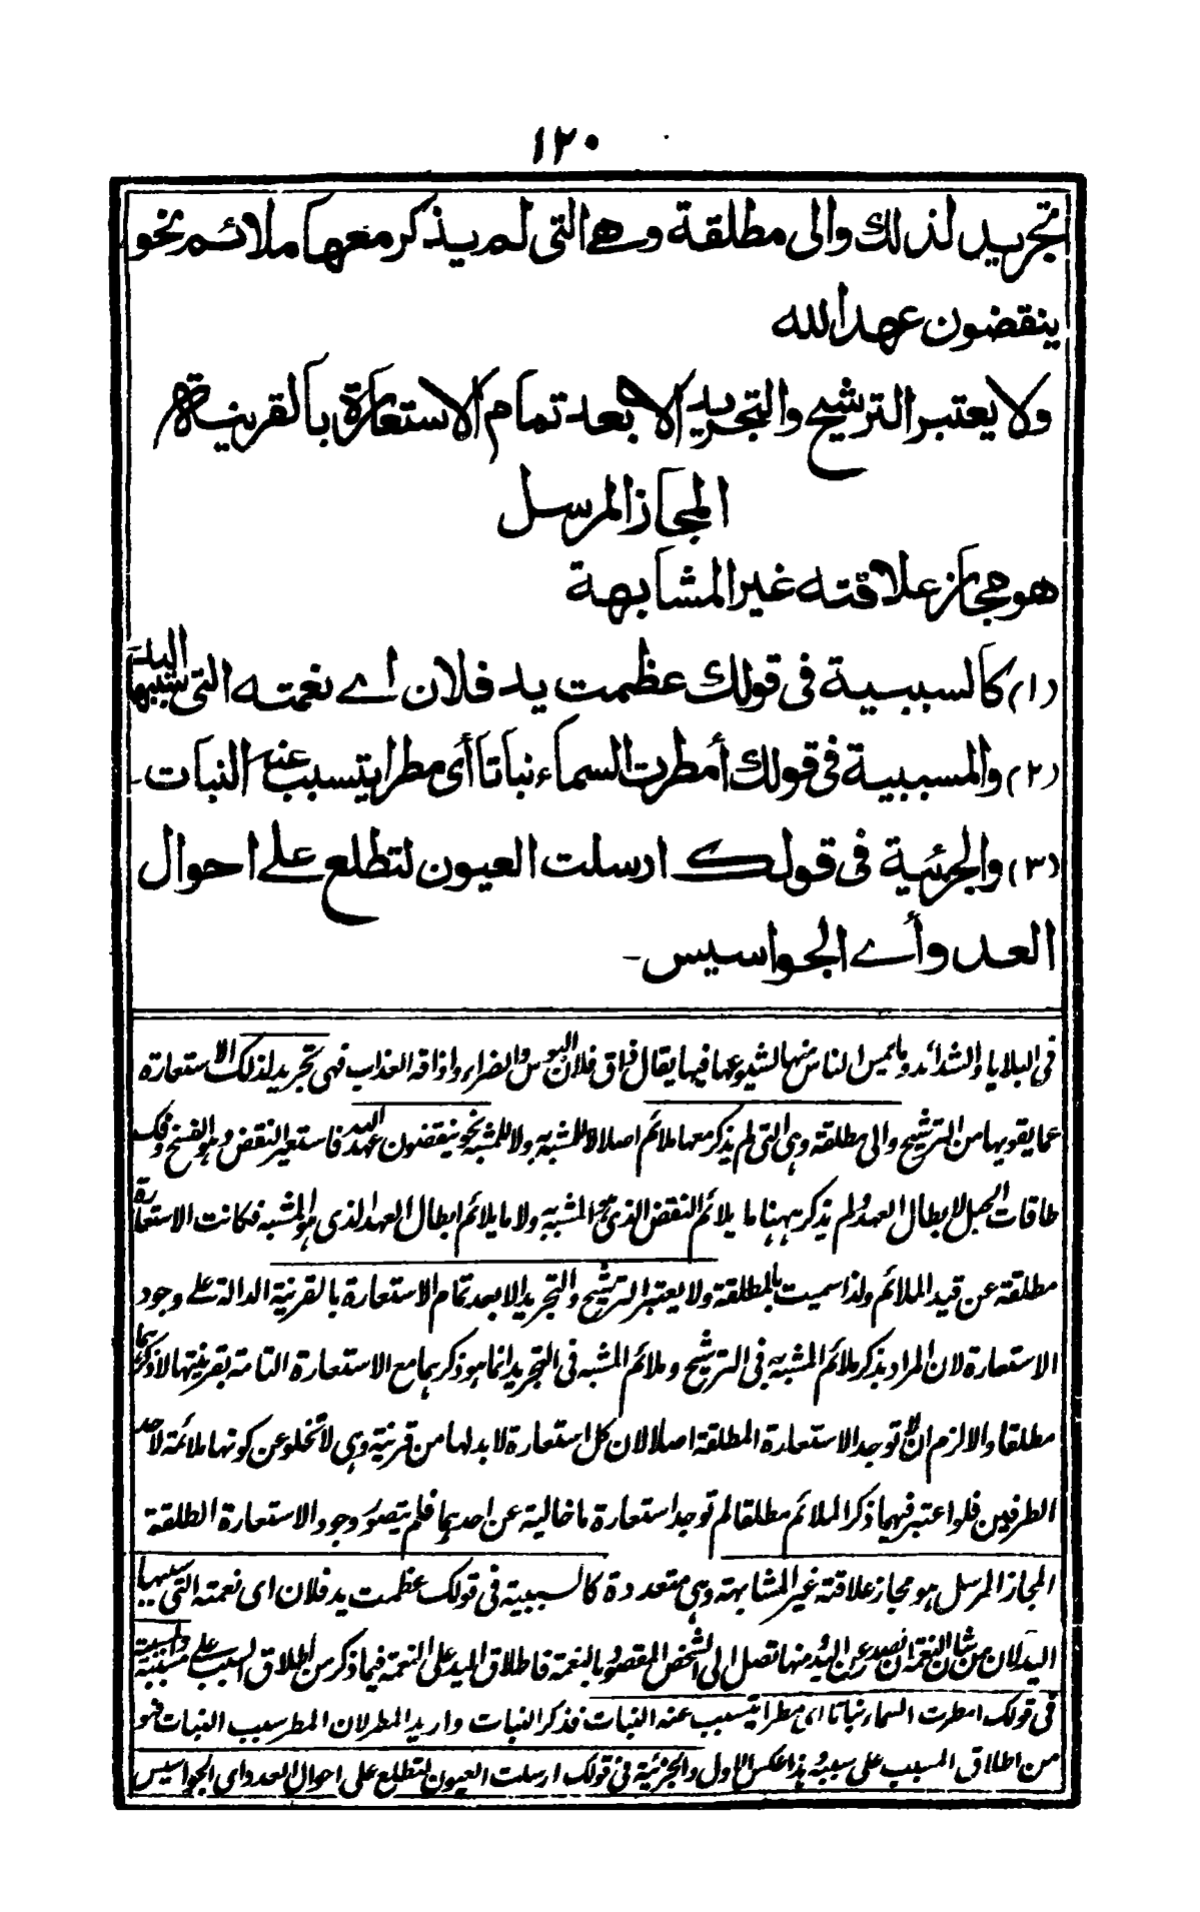 ١٢٠
تجريد لذلك والى مطلقة وهے التى لم يذكر معها ملائم نحو
ينقضون عهد الله
ولا يعتبر الترشيح والتجريد الا بعد تمام الاستعارة بالقرينة
المجاز المرسل
هو مجاز علاقته غير المشابهة
(١) كالسببية فى قولك عظمت يد فلان اے نعمته التى سببها اليد
(٢) والمسببية فى قولك أمطرت السماء نباتا أى مطرا يتسبب عنه النبات-
(٣) والجزئية فى قولك ارسلت العيون لتطلع علے احوال
العدو أے الجواسيس-
فى البلايا والشدائد وما يمس الناس منها لشيوعها فيها يقال ذاق فلان البوس والضراء واذاقه العذاب فهى تجريد لذلك الاستعارة
عما يقويها من الترشيح والى مطلقة وهى التى لم يذكر معها ملائم اصلا لا للمشبه به ولا للمشبه نحو ينقضون عهد الله فاستعير النقض وهو الفسخ وفك
طاقات الحبل لابطال العهد ولم يذكر ههنا ما يلائم النقض الذى هو المشبه به ولا ما يلائم ابطال العهد الذى هو المشبه فكانت الاستعارة
مطلقة عن قيد الملائم ولذا سميت بالمطلقة ولا يعتبر الترشيح والتجريد الا بعد تمام الاستعارة بالقرينة الدالة على وجود
الاستعارة لان المراد بذكر ملائم المشبه به فى الترشيح وملائم المشبه فى التجريد انما هو ذكرهما مع الاستعارة التامة بقرينتها لا ذكرهما
مطلقا والا لزم ان لا توجد الاستعارة المطلقة اصلا لان كل استعارة لا بد لها من قرينة وهى لا تخلو عن كونها ملائمة لاحد
الطرفين فلو اعتبر فيهما ذكر الملائم مطلقا لم توجد استعارة ما خالية عن احدهما فلم يتصور وجود الاستعارة الطلقة
المجاز المرسل هو مجاز علاقته غير المشابهة وهى متعددة كالسببية فى قولك عظمت يد فلان اى نعمته التى سببها
اليد لان من شان النعمة ان تصدر عن اليد ومنها تصل الى الشخص المقصود بالنعمة فاطلاق اليد على النعمة فيما ذكر من اطلاق السبب على مسببه والمسببية
فى قولك امطرت السماء نباتا اى مطرا يتسبب عنه النبات فذكر النبات واريد المطر لان المطر سبب النبات فهو
من اطلاق المسبب على سببه وهذا عكس الاول والجزئية فى قولك ارسلت العيون لتطلع على احوال العدو اى الجواسيس